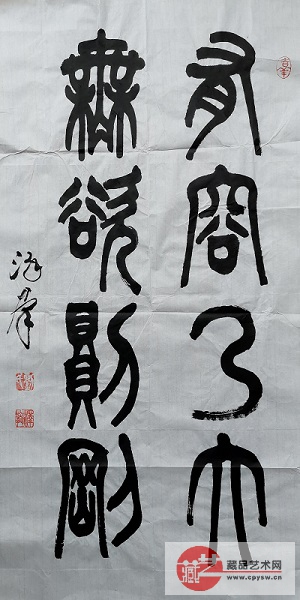 有容乃大
無欲則剛
藏艺
藏品艺术网
www.cpysw.cn